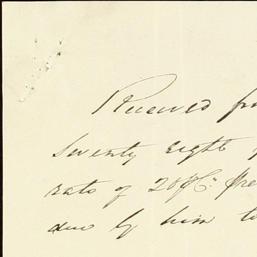 Received fr
Seventy eight
rate of 20 pc: Pre
due by him to